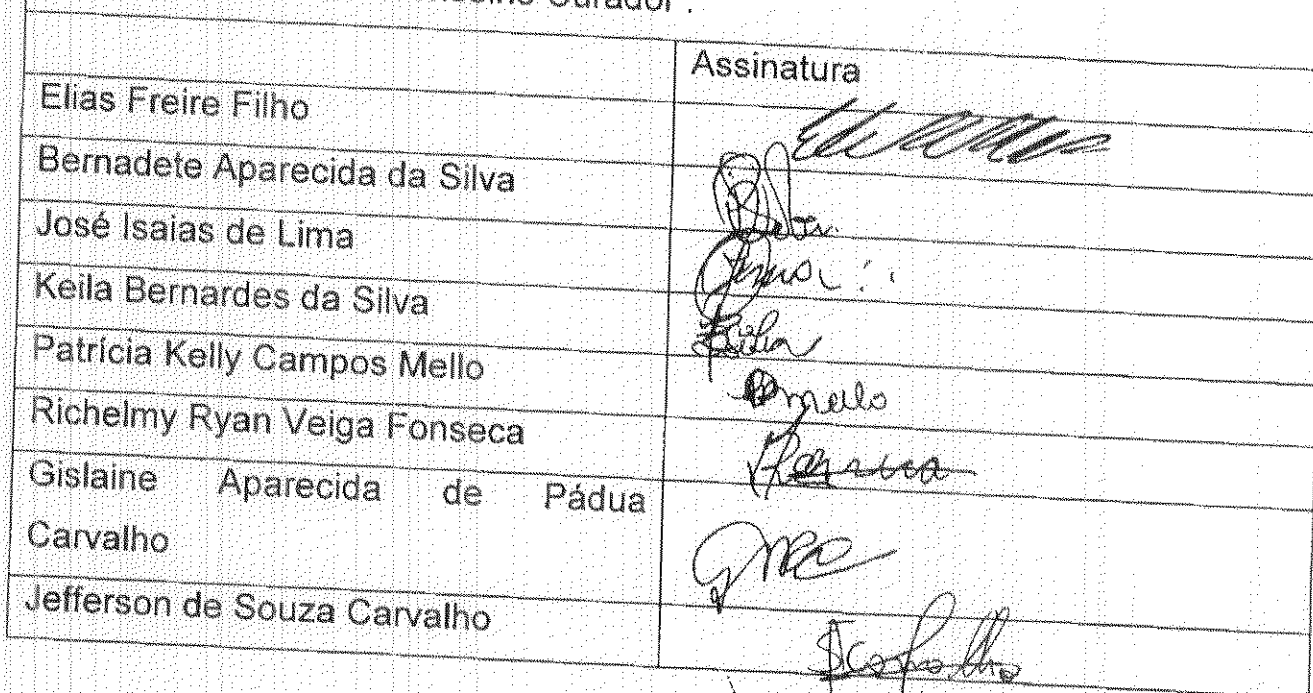 Curador .
Assinatura
Elias Freire Filho
Bernadete Aparecida da Silva
José Isaias de Lima
Keila Bernardes da Silva
Keila
Patrícia Kelly Campos Mello
Pmello
Richelmy Ryan Veiga Fonseca
Gislaine Aparecida de Pádua
Carvalho
Jefferson de Souza Carvalho